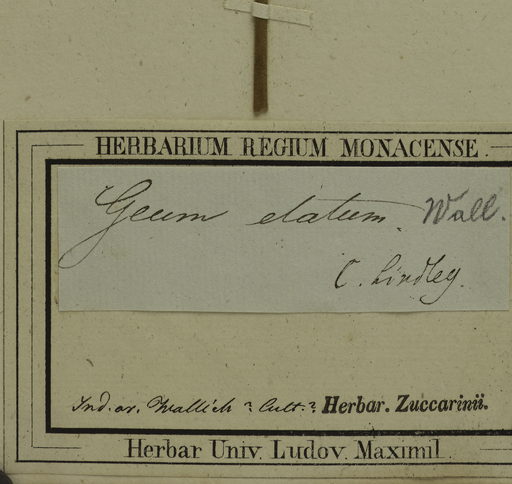 HERBARIUM REGIUM MONACENSE
Geum elatum. Wall.
C. Lindley.
Ind. or. Wallich? Cult.? Herbar. Zuccarinii.
Herbar Univ. Ludov. Maximil